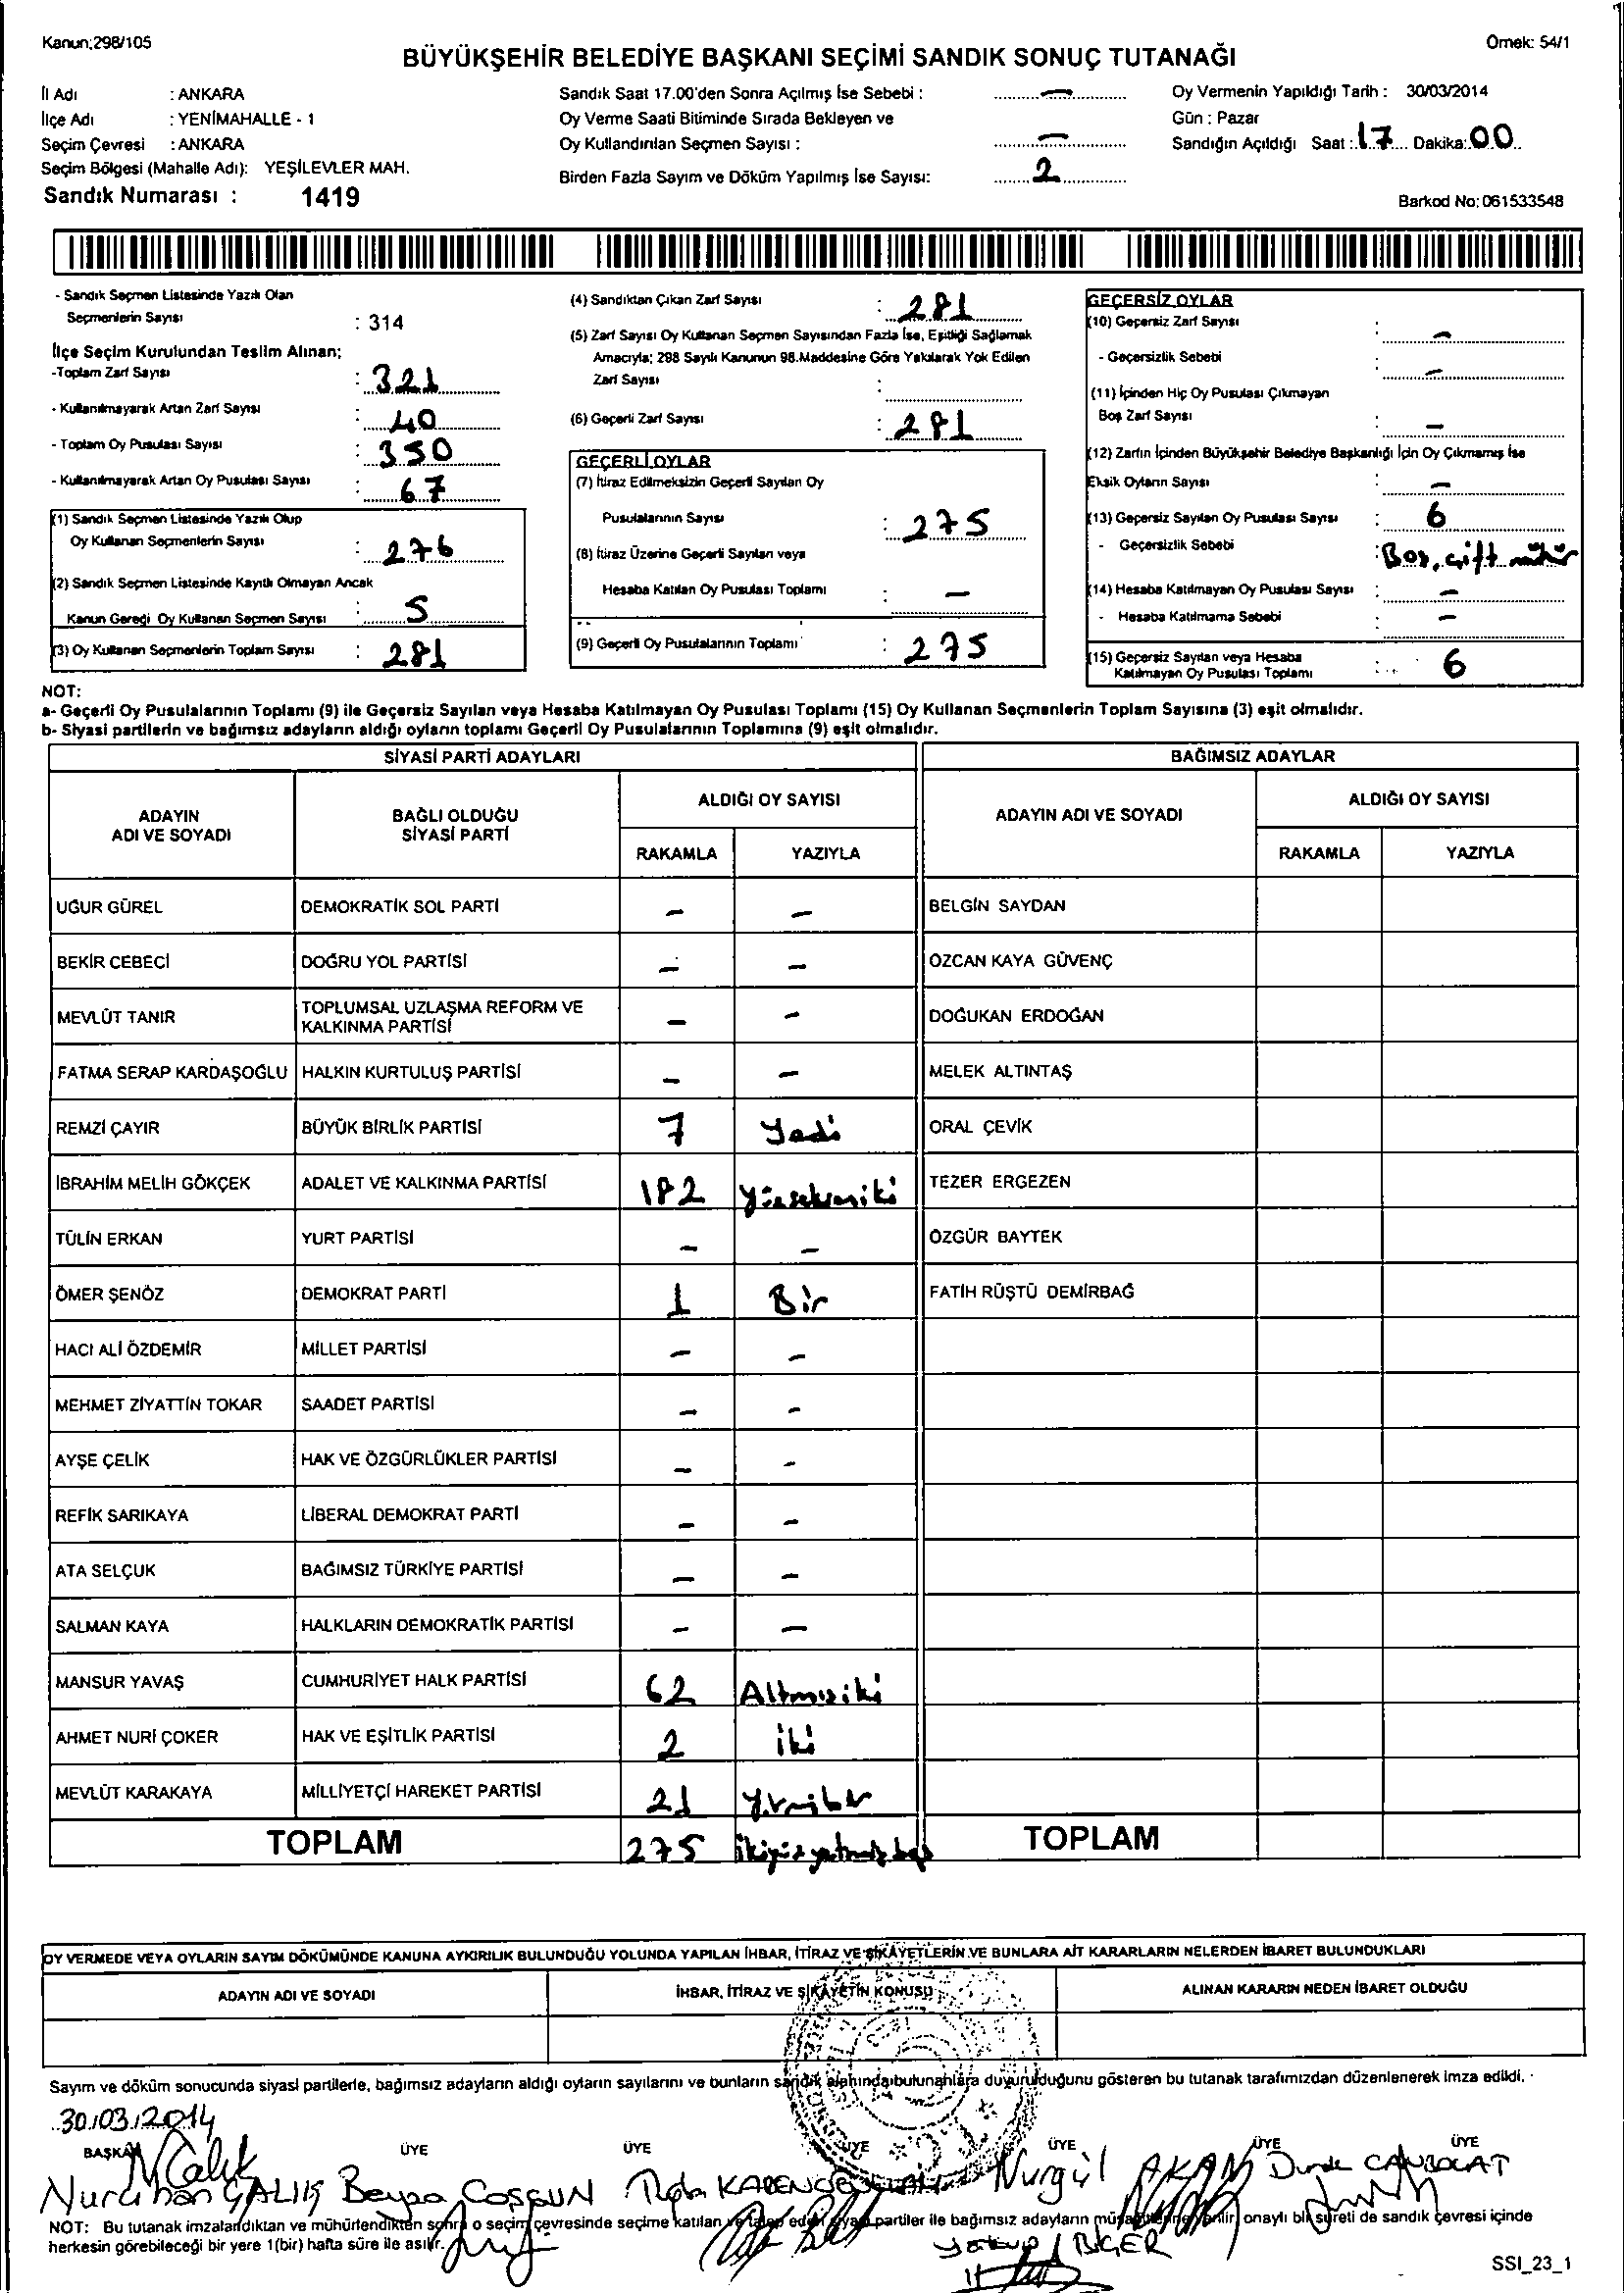 Kanun;298/105
Örnek: 54/1
BÜYÜKŞEHİR BELEDİYE BAŞKANI SEÇİMİ SANDIK SONUÇ TUTANAĞI
İl Adı : ANKARA
İlçe Adı : YENİMAHALLE - 1
Seçim Çevresi : ANKARA
Seçim Bölgesi (Mahalle Adı): YEŞİLEVLER MAH.
Sandık Numarası : 1419
Sandık Saat 17.00'den Sonra Açılmış İse Sebebi : —
Oy Verme Saati Bitiminde Sırada Bekleyen ve
Oy Kullandırılan Seçmen Sayısı : —
Birden Fazla Sayım ve Döküm Yapılmış İse Sayısı: 2
Oy Vermenin Yapıldığı Tarih : 30/03/2014
Gün : Pazar
Sandığın Açıldığı Saat : 17 Dakika: 00
Barkod No: 061533548
- Sandık Seçmen Listesinde Yazılı Olan
Seçmenlerin Sayısı : 314
İlçe Seçim Kurulundan Teslim Alınan;
-Toplam Zarf Sayısı : 321
- Kullanılmayarak Artan Zarf Sayısı : 40
- Toplam Oy Pusulası Sayısı : 350
- Kullanılmayarak Artan Oy Pusulası Sayısı : 67
(1) Sandık Seçmen Listesinde Yazılı Olup
Oy Kullanan Seçmenlerin Sayısı : 276
(2) Sandık Seçmen Listesinde Kayıtlı Olmayan Ancak
Kanun Gereği Oy Kullanan Seçmen Sayısı : 5
(3) Oy Kullanan Seçmenlerin Toplam Sayısı : 281
(4) Sandıktan Çıkan Zarf Sayısı : 281
(5) Zarf Sayısı Oy Kullanan Seçmen Sayısından Fazla İse, Eşitliği Sağlamak
Amacıyla; 298 Sayılı Kanunun 98.Maddesine Göre Yakılarak Yok Edilen
Zarf Sayısı :
(6) Geçerli Zarf Sayısı : 281
GEÇERLİ OYLAR
(7) İtiraz Edilmeksizin Geçerli Sayılan Oy
Pusulalarının Sayısı : 275
(8) İtiraz Üzerine Geçerli Sayılan veya
Hesaba Katılan Oy Pusulası Toplamı : —
(9) Geçerli Oy Pusulalarının Toplamı : 275
GEÇERSİZ OYLAR
(10) Geçersiz Zarf Sayısı : —
- Geçersizlik Sebebi : —
(11) İçinden Hiç Oy Pusulası Çıkmayan
Boş Zarf Sayısı : —
(12) Zarfın İçinden Büyükşehir Belediye Başkanlığı İçin Oy Çıkmamış İse
Eksik Oyların Sayısı : —
(13) Geçersiz Sayılan Oy Pusulası Sayısı : 6
- Geçersizlik Sebebi : Boş, çift mühür
(14) Hesaba Katılmayan Oy Pusulası Sayısı : —
- Hesaba Katılmama Sebebi : —
(15) Geçersiz Sayılan veya Hesaba
Katılmayan Oy Pusulası Toplamı : 6
NOT:
a- Geçerli Oy Pusulalarının Toplamı (9) ile Geçersiz Sayılan veya Hesaba Katılmayan Oy Pusulası Toplamı (15) Oy Kullanan Seçmenlerin Toplam Sayısına (3) eşit olmalıdır.
b- Siyasi partilerin ve bağımsız adayların aldığı oyların toplamı Geçerli Oy Pusulalarının Toplamına (9) eşit olmalıdır.
SİYASİ PARTİ ADAYLARI BAĞIMSIZ ADAYLAR
ADAYIN ADI VE SOYADI BAĞLI OLDUĞU SİYASİ PARTİ ALDIĞI OY SAYISI ADAYIN ADI VE SOYADI ALDIĞI OY SAYISI
RAKAMLA YAZIYLA RAKAMLA YAZIYLA
UĞUR GÜREL DEMOKRATİK SOL PARTİ — — BELGİN SAYDAN
BEKİR CEBECİ DOĞRU YOL PARTİSİ — — ÖZCAN KAYA GÜVENÇ
MEVLÜT TANIR TOPLUMSAL UZLAŞMA REFORM VE KALKINMA PARTİSİ — — DOĞUKAN ERDOĞAN
FATMA SERAP KARDAŞOĞLU HALKIN KURTULUŞ PARTİSİ — — MELEK ALTINTAŞ
REMZİ ÇAYIR BÜYÜK BİRLİK PARTİSİ 7 Yedi ORAL ÇEVİK
İBRAHİM MELİH GÖKÇEK ADALET VE KALKINMA PARTİSİ 182 Yüzsekseniki TEZER ERGEZEN
TÜLİN ERKAN YURT PARTİSİ — — ÖZGÜR BAYTEK
ÖMER ŞENÖZ DEMOKRAT PARTİ 1 Bir FATİH RÜŞTÜ DEMİRBAĞ
HACI ALİ ÖZDEMİR MİLLET PARTİSİ — —
MEHMET ZİYATTİN TOKAR SAADET PARTİSİ — —
AYŞE ÇELİK HAK VE ÖZGÜRLÜKLER PARTİSİ — —
REFİK SARIKAYA LİBERAL DEMOKRAT PARTİ — —
ATA SELÇUK BAĞIMSIZ TÜRKİYE PARTİSİ — —
SALMAN KAYA HALKLARIN DEMOKRATİK PARTİSİ — —
MANSUR YAVAŞ CUMHURİYET HALK PARTİSİ 62 Altmışiki
AHMET NURİ ÇOKER HAK VE EŞİTLİK PARTİSİ 2 iki
MEVLÜT KARAKAYA MİLLİYETÇİ HAREKET PARTİSİ 21 Yirmibir
TOPLAM 275 ikiyüz yetmiş beş TOPLAM
OY VERMEDE VEYA OYLARIN SAYIM DÖKÜMÜNDE KANUNA AYKIRILIK BULUNDUĞU YOLUNDA YAPILAN İHBAR, İTİRAZ VE ŞİKAYETLERİN VE BUNLARA AİT KARARLARIN NELERDEN İBARET BULUNDUKLARI
ADAYIN ADI VE SOYADI İHBAR, İTİRAZ VE ŞİKAYETİN KONUSU ALINAN KARARIN NEDEN İBARET OLDUĞU
Sayım ve döküm sonucunda siyasi partilerle, bağımsız adayların aldığı oyların sayılarını ve bunların sandık alanında bulunanlara duyurulduğunu gösteren bu tutanak tarafımızdan düzenlenerek imza edildi.
30/03/2014
BAŞKAN ÜYE ÜYE ÜYE ÜYE ÜYE ÜYE
Nurcihan ÇALIŞ Beyza COŞGUN Nurgül AKAN CANBOLAT
Yakup BİÇER
NOT: Bu tutanak imzalandıktan ve mühürlendikten sonra o seçim çevresinde seçime katılan ve talep eden siyasi partiler ile bağımsız adayların müşahitlerine verilir, onaylı bir sureti de sandık çevresi içinde
herkesin görebileceği bir yere 1(bir) hafta süre ile asılır.
SSI_23_1